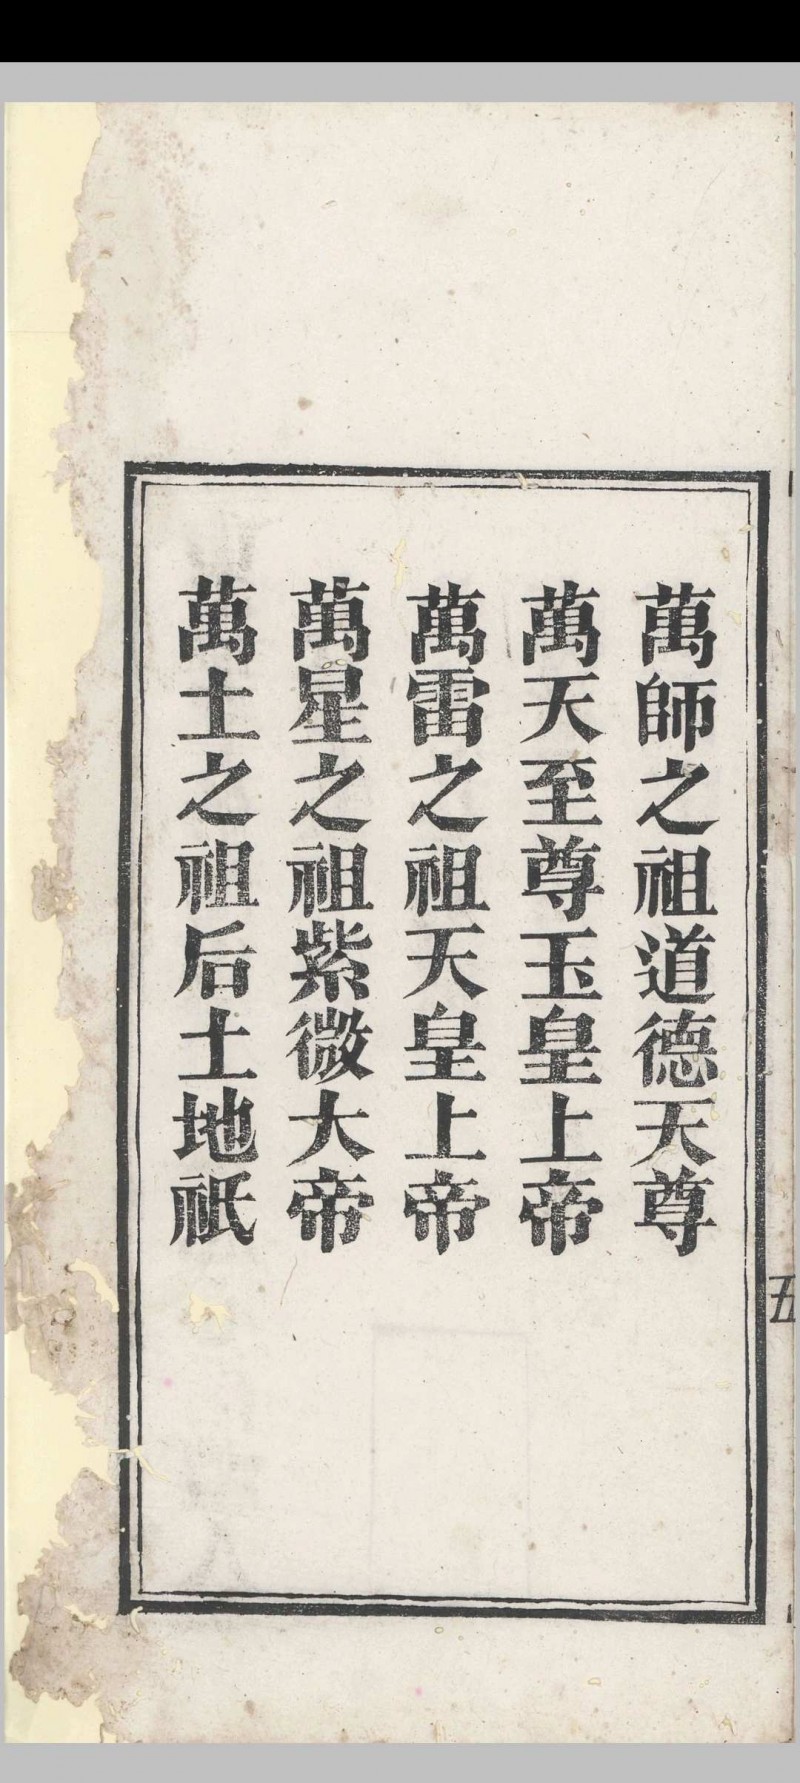 萬師之祖道德天尊
萬天至尊玉皇上帝
萬雷之祖天皇上帝
萬星之祖紫微大帝
萬土之祖后土地祇
五